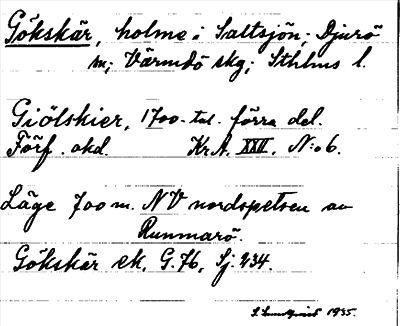 Gökskär, holme i Saltsjön; Djurö
sn; Värmdö skg; Sthlms l.
Giölskier, 1700-tal. förra del.
Förf. okd. Kr.A. XXII, N:o 6.
Läge 700 m. NV nordspetsen av
Runmarö.
Gökskär ek. G.76, Sj. 234.
1935.